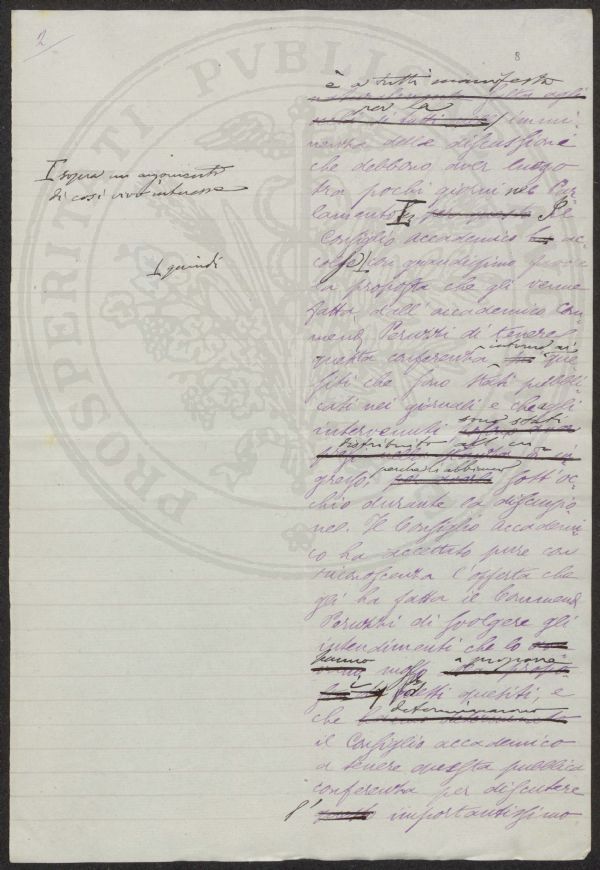 2
8
è a tutti manifesta
naturalmente fatta agli
per la
immi-
nenza della discussione
che debbono aver luogo
tra pochi giorni nel Par
lamento
Il
Consiglio accademico ac
colse con grandissimo favore
la proposta che gli venne
fatta dall'accademico Com
mend. Peruzzi di tenere
questa conferenza intorno ai que
siti che sono stati pubbli
cati nei giornali e che agli
intervenuti sono stati
distribuiti all'in
gresso, perché li abbiano sott'oc-
chio durante la discussio
ne. Il Consiglio accademi-
co ha accettato pure con
riconoscenza l'offerta che
gli ha fatta il Commend.
Peruzzi di svolgere gli
intendimenti che lo
hanno mosso a proporre
detti quesiti, e
che determinarono
il Consiglio accademico
a tenere questa pubblica
conferenza per discutere
l' importantissimo
I sopra un argomento
di così vivo interesse
I quindi
PROSPERITATI PVBLICAE